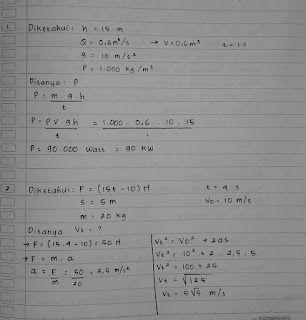 1. Diketahui : h = 15 m
Q = 0,6 m³/s → V = 0,6 m³ t = 1 s
g = 10 m/s²
ρ = 1.000 kg/m³
Ditanya : P
P = m . g . h
t
P = ρ V g h = 1.000 . 0,6 . 10 . 15
t 1
P = 90.000 Watt = 90 KW
2. Diketahui : F = (15t - 10) N t = 4 s
s = 5 m Vo = 10 m/s
m = 20 kg
Ditanya Vt = ?
→ F = (15.4 - 10) = 50 N
→ F = m . a
a = F = 50 = 2,5 m/s²
m 20
Vt² = Vo² + 2as
Vt² = 10² + 2 . 2,5 . 5
Vt² = 100 + 25
Vt = √125
Vt = 5√5 m/s